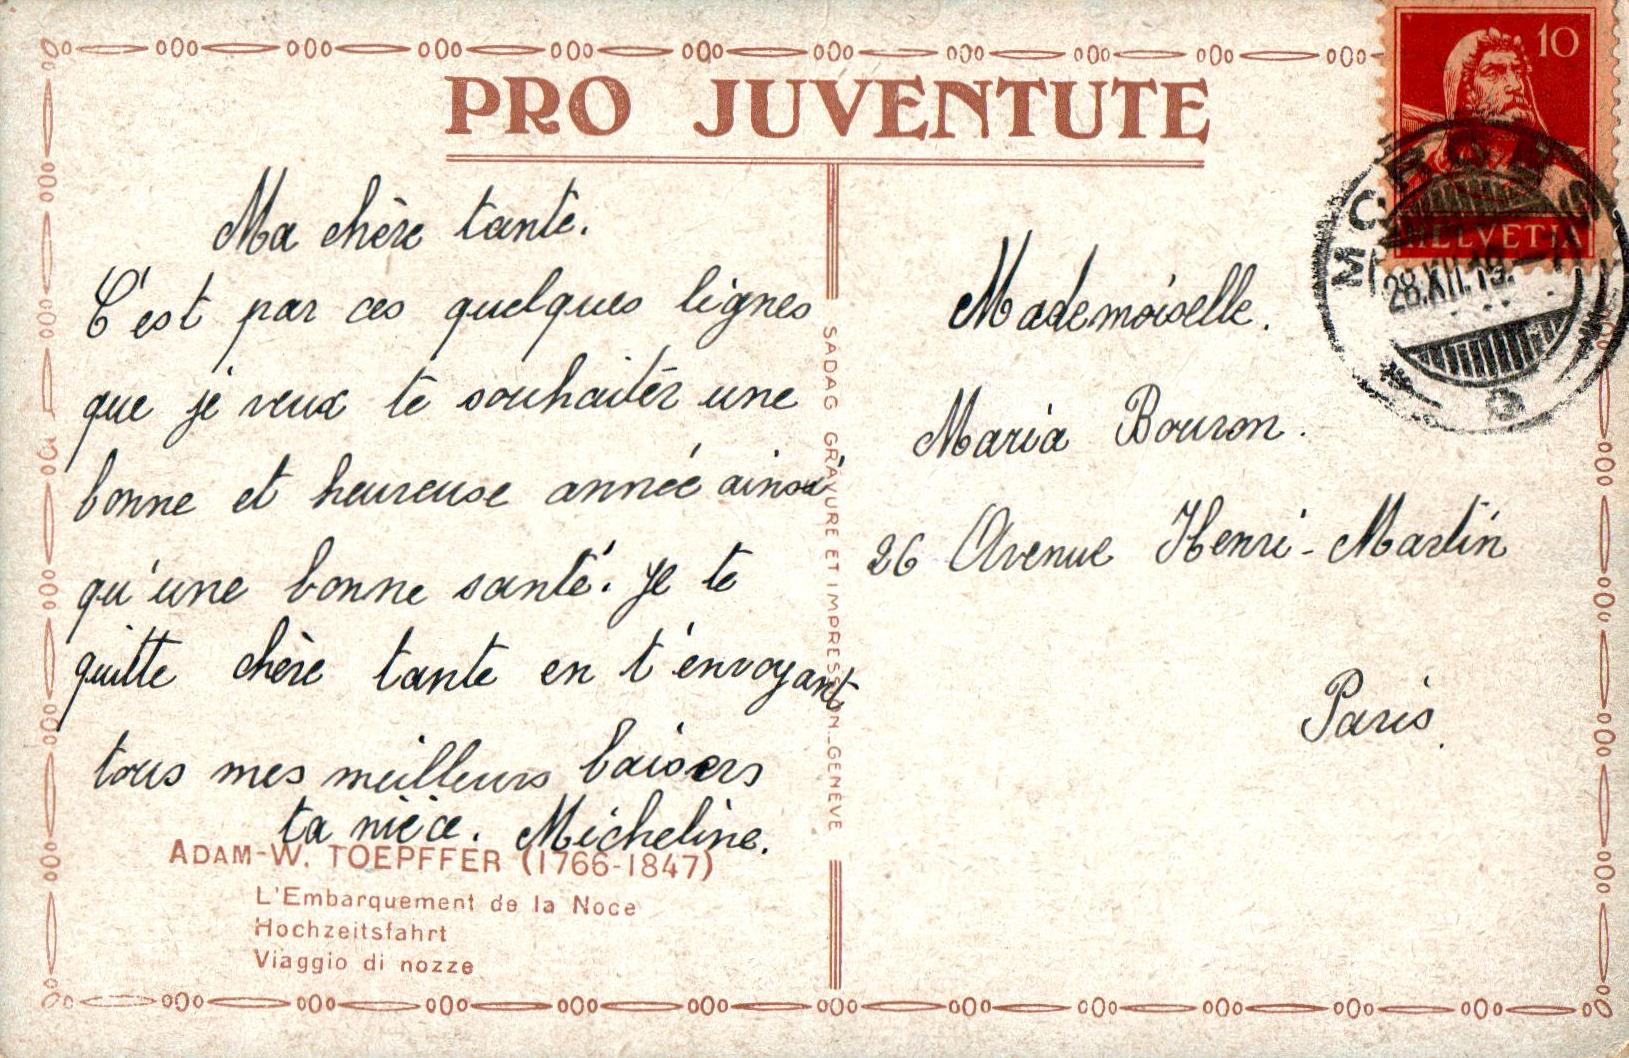 PRO JUVENTUTE
Ma chère tante.
C'est par ces quelques lignes
que je veux te souhaiter une
bonne et heureuse année ainsi
qu'une bonne santé. Je te
quitte chère tante en t'envoyant
tous mes meilleurs baisers
ta nièce. Micheline.
ADAM-W. TOEPFFER (1766-1847)
L'Embarquement de la Noce
Hochzeitsfahrt
Viaggio di nozze
SADAG GRAVURE ET IMPRESSION_GENÈVE
10
HELVETIA
MORGES
28.XII.19.
Mademoiselle.
Maria Bouron.
26 Avenue Henri-Martin
Paris.